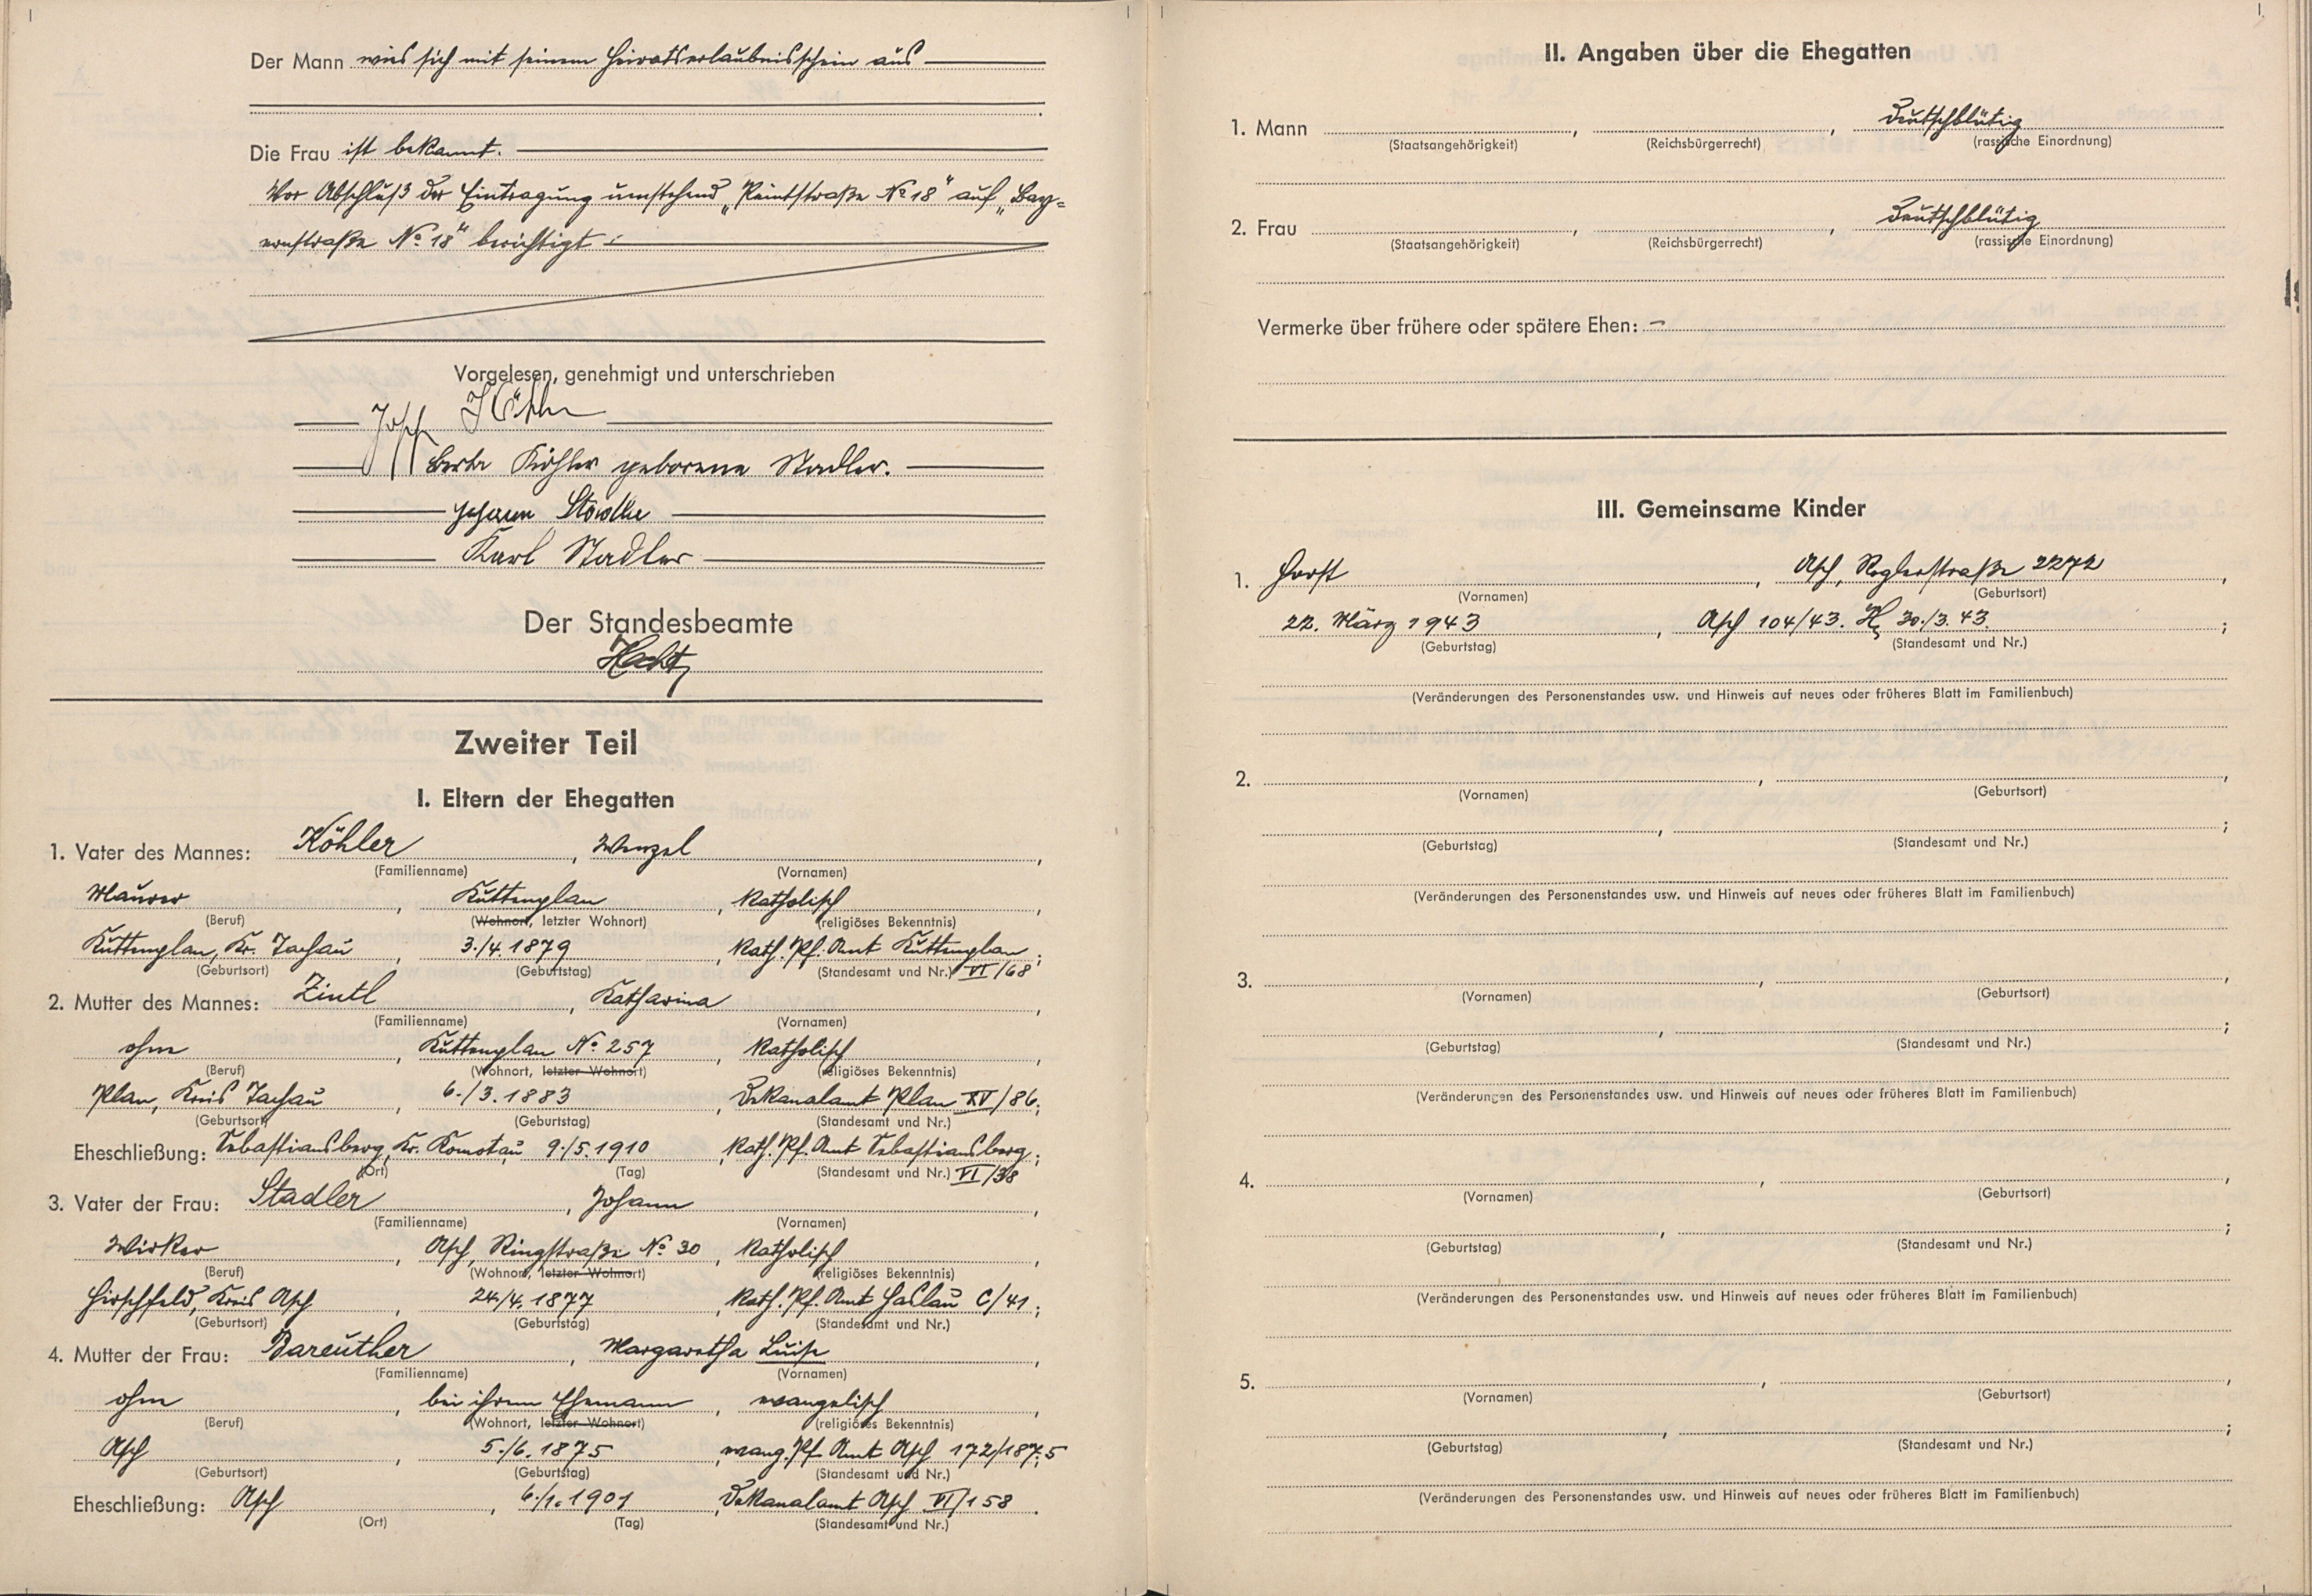 Der Mann wies sich mit seinem Heiratserlaubnisschein aus
Die Frau ist bekannt.
Vor Abschluß der Eintragung umstehend „Reintstraße No 18" auf „Bay=
ernstraße No 18" berichtigt :
Vorgelesen, genehmigt und unterschrieben
Josef Köhler
Berta Köhler geborene Stadler.
Johann Stadler
Karl Stadler
Der Standesbeamte
Zweiter Teil
I. Eltern der Ehegatten
1. Vater des Mannes: Köhler, Wenzel,
(Familienname) (Vornamen)
Maurer, Kuttenplan, katholisch,
(Beruf) (Wohnort, letzter Wohnort) (religiöses Bekenntnis)
Kuttenplan, Kr. Tachau, 3./4. 1879, Kath. Pf. Amt Kuttenplan;
(Geburtsort) (Geburtstag) (Standesamt und Nr.) VI/68
2. Mutter des Mannes: Zintl, Katharina,
(Familienname) (Vornamen)
ohne, Kuttenplan No 257, katholisch,
(Beruf) (Wohnort, letzter Wohnort) (religiöses Bekenntnis)
Plan, Kreis Tachau, 6./3. 1883, Dekanalamt Plan XV/86;
(Geburtsort) (Geburtstag) (Standesamt und Nr.)
Eheschließung: Sebastiansberg, Kr. Komotau 9./5. 1910, Kath. Pf. Amt Sebastiansberg;
(Ort) (Tag) (Standesamt und Nr.) VI/38
3. Vater der Frau: Stadler, Johann,
(Familienname) (Vornamen)
Wirker, Asch, Ringstraße No 30, katholisch,
(Beruf) (Wohnort, letzter Wohnort) (religiöses Bekenntnis)
Hirschfeld, Kreis Asch, 24./4. 1877, Kath. Pf. Amt Haslau C/41;
(Geburtsort) (Geburtstag) (Standesamt und Nr.)
4. Mutter der Frau: Bareuther, Margaretha Luise,
(Familienname) (Vornamen)
ohne, bei ihrem Ehemann, evangelisch,
(Beruf) (Wohnort, letzter Wohnort) (religiöses Bekenntnis)
Asch, 5./6. 1875, evang. Pf. Amt Asch 172/1875;
(Geburtsort) (Geburtstag) (Standesamt und Nr.)
Eheschließung: Asch, 6./1. 1901, Dekanalamt Asch VI/158.
(Ort) (Tag) (Standesamt und Nr.)
II. Angaben über die Ehegatten
1. Mann, , deutschblütig
(Staatsangehörigkeit) (Reichsbürgerrecht) (rassische Einordnung)
2. Frau, , deutschblütig
(Staatsangehörigkeit) (Reichsbürgerrecht) (rassische Einordnung)
Vermerke über frühere oder spätere Ehen: –
III. Gemeinsame Kinder
1. Horst, Asch, Roglerstraße 2272,
(Vornamen) (Geburtsort)
22. März 1943, Asch 104/43. 30./3. 43.;
(Geburtstag) (Standesamt und Nr.)
(Veränderungen des Personenstandes usw. und Hinweis auf neues oder früheres Blatt im Familienbuch)
2. , ,
(Vornamen) (Geburtsort)
, ;
(Geburtstag) (Standesamt und Nr.)
(Veränderungen des Personenstandes usw. und Hinweis auf neues oder früheres Blatt im Familienbuch)
3. , ,
(Vornamen) (Geburtsort)
, ;
(Geburtstag) (Standesamt und Nr.)
(Veränderungen des Personenstandes usw. und Hinweis auf neues oder früheres Blatt im Familienbuch)
4. , ,
(Vornamen) (Geburtsort)
, ;
(Geburtstag) (Standesamt und Nr.)
(Veränderungen des Personenstandes usw. und Hinweis auf neues oder früheres Blatt im Familienbuch)
5. , ,
(Vornamen) (Geburtsort)
, ;
(Geburtstag) (Standesamt und Nr.)
(Veränderungen des Personenstandes usw. und Hinweis auf neues oder früheres Blatt im Familienbuch)